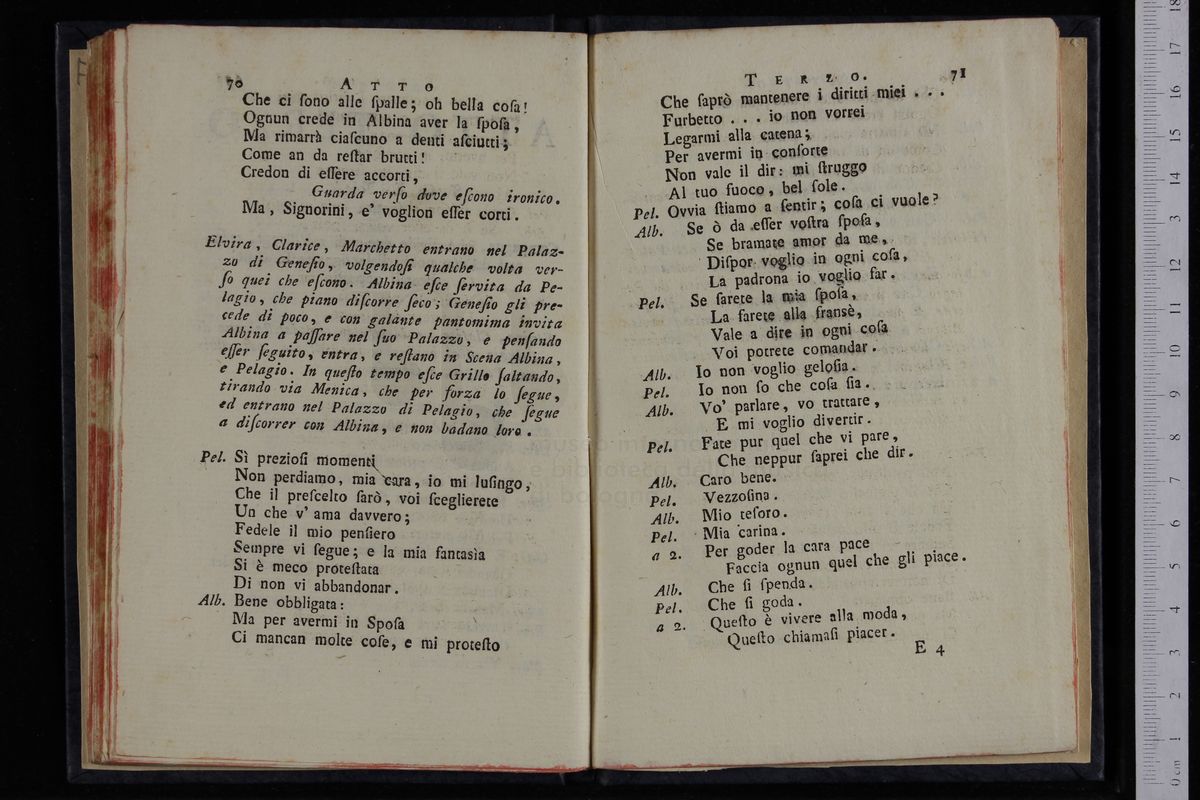 70 ATTO
Che ci ſono alle ſpalle; oh bella coſa!
Ognun crede in Albina aver la ſpoſa,
Ma rimarrà ciaſcuno a denti aſciutti;
Come an da reſtar brutti!
Credon di eſſere accorti,
Guarda verſo dove eſcono ironico.
Ma, Signorini, e' voglion eſſer corti.
Elvira, Clarice, Marchetto entrano nel Palaz-
zo di Geneſio, volgendoſi qualche volta ver-
ſo quei che eſcono. Albina eſce ſervita da Pe-
lagio, che piano diſcorre ſeco; Geneſio gli pre-
cede di poco, e con galante pantomima invita
Albina a paſſare nel ſuo Palazzo, e penſando
eſſer ſeguito, entra, e reſtano in Scena Albina,
e Pelagio. In queſto tempo eſce Grillo ſaltando,
tirando via Menica, che per forza lo ſegue,
ed entrano nel Palazzo di Pelagio, che ſegue
a diſcorrer con Albina, e non badano loro.
Pel. Sì prezioſi momenti
Non perdiamo, mia cara, io mi luſingo,
Che il preſcelto ſarò, voi ſceglierete
Un che v' ama davvero;
Fedele il mio penſiero
Sempre vi ſegue; e la mia fantasìa
Si è meco proteſtata
Di non vi abbandonar.
Alb. Bene obbligata:
Ma per avermi in Spoſa
Ci mancan molte coſe, e mi proteſto
TERZO. 71
Che ſaprò mantenere i diritti miei . . .
Furbetto . . . io non vorrei
Legarmi alla catena;
Per avermi in conſorte
Non vale il dir: mi ſtruggo
Al tuo fuoco, bel ſole.
Pel. Ovvia ſtiamo a ſentir; coſa ci vuole?
Alb. Se ò da eſſer voſtra ſpoſa,
Se bramate amor da me,
Diſpor voglio in ogni coſa,
La padrona io voglio far.
Pel. Se ſarete la mia ſpoſa,
La farete alla fransè,
Vale a dire in ogni coſa
Voi potrete comandar.
Alb. Io non voglio geloſia.
Pel. Io non ſo che coſa ſia.
Alb. Vo' parlare, vo trattare,
E mi voglio divertir.
Pel. Fate pur quel che vi pare,
Che neppur ſaprei che dir.
Alb. Caro bene.
Pel. Vezzoſina.
Alb. Mio teſoro.
Pel. Mia carina.
a 2. Per goder la cara pace
Faccia ognun quel che gli piace.
Alb. Che ſi ſpenda.
Pel. Che ſi goda.
a 2. Queſto è vivere alla moda,
Queſto chiamaſi piacer.
E 4